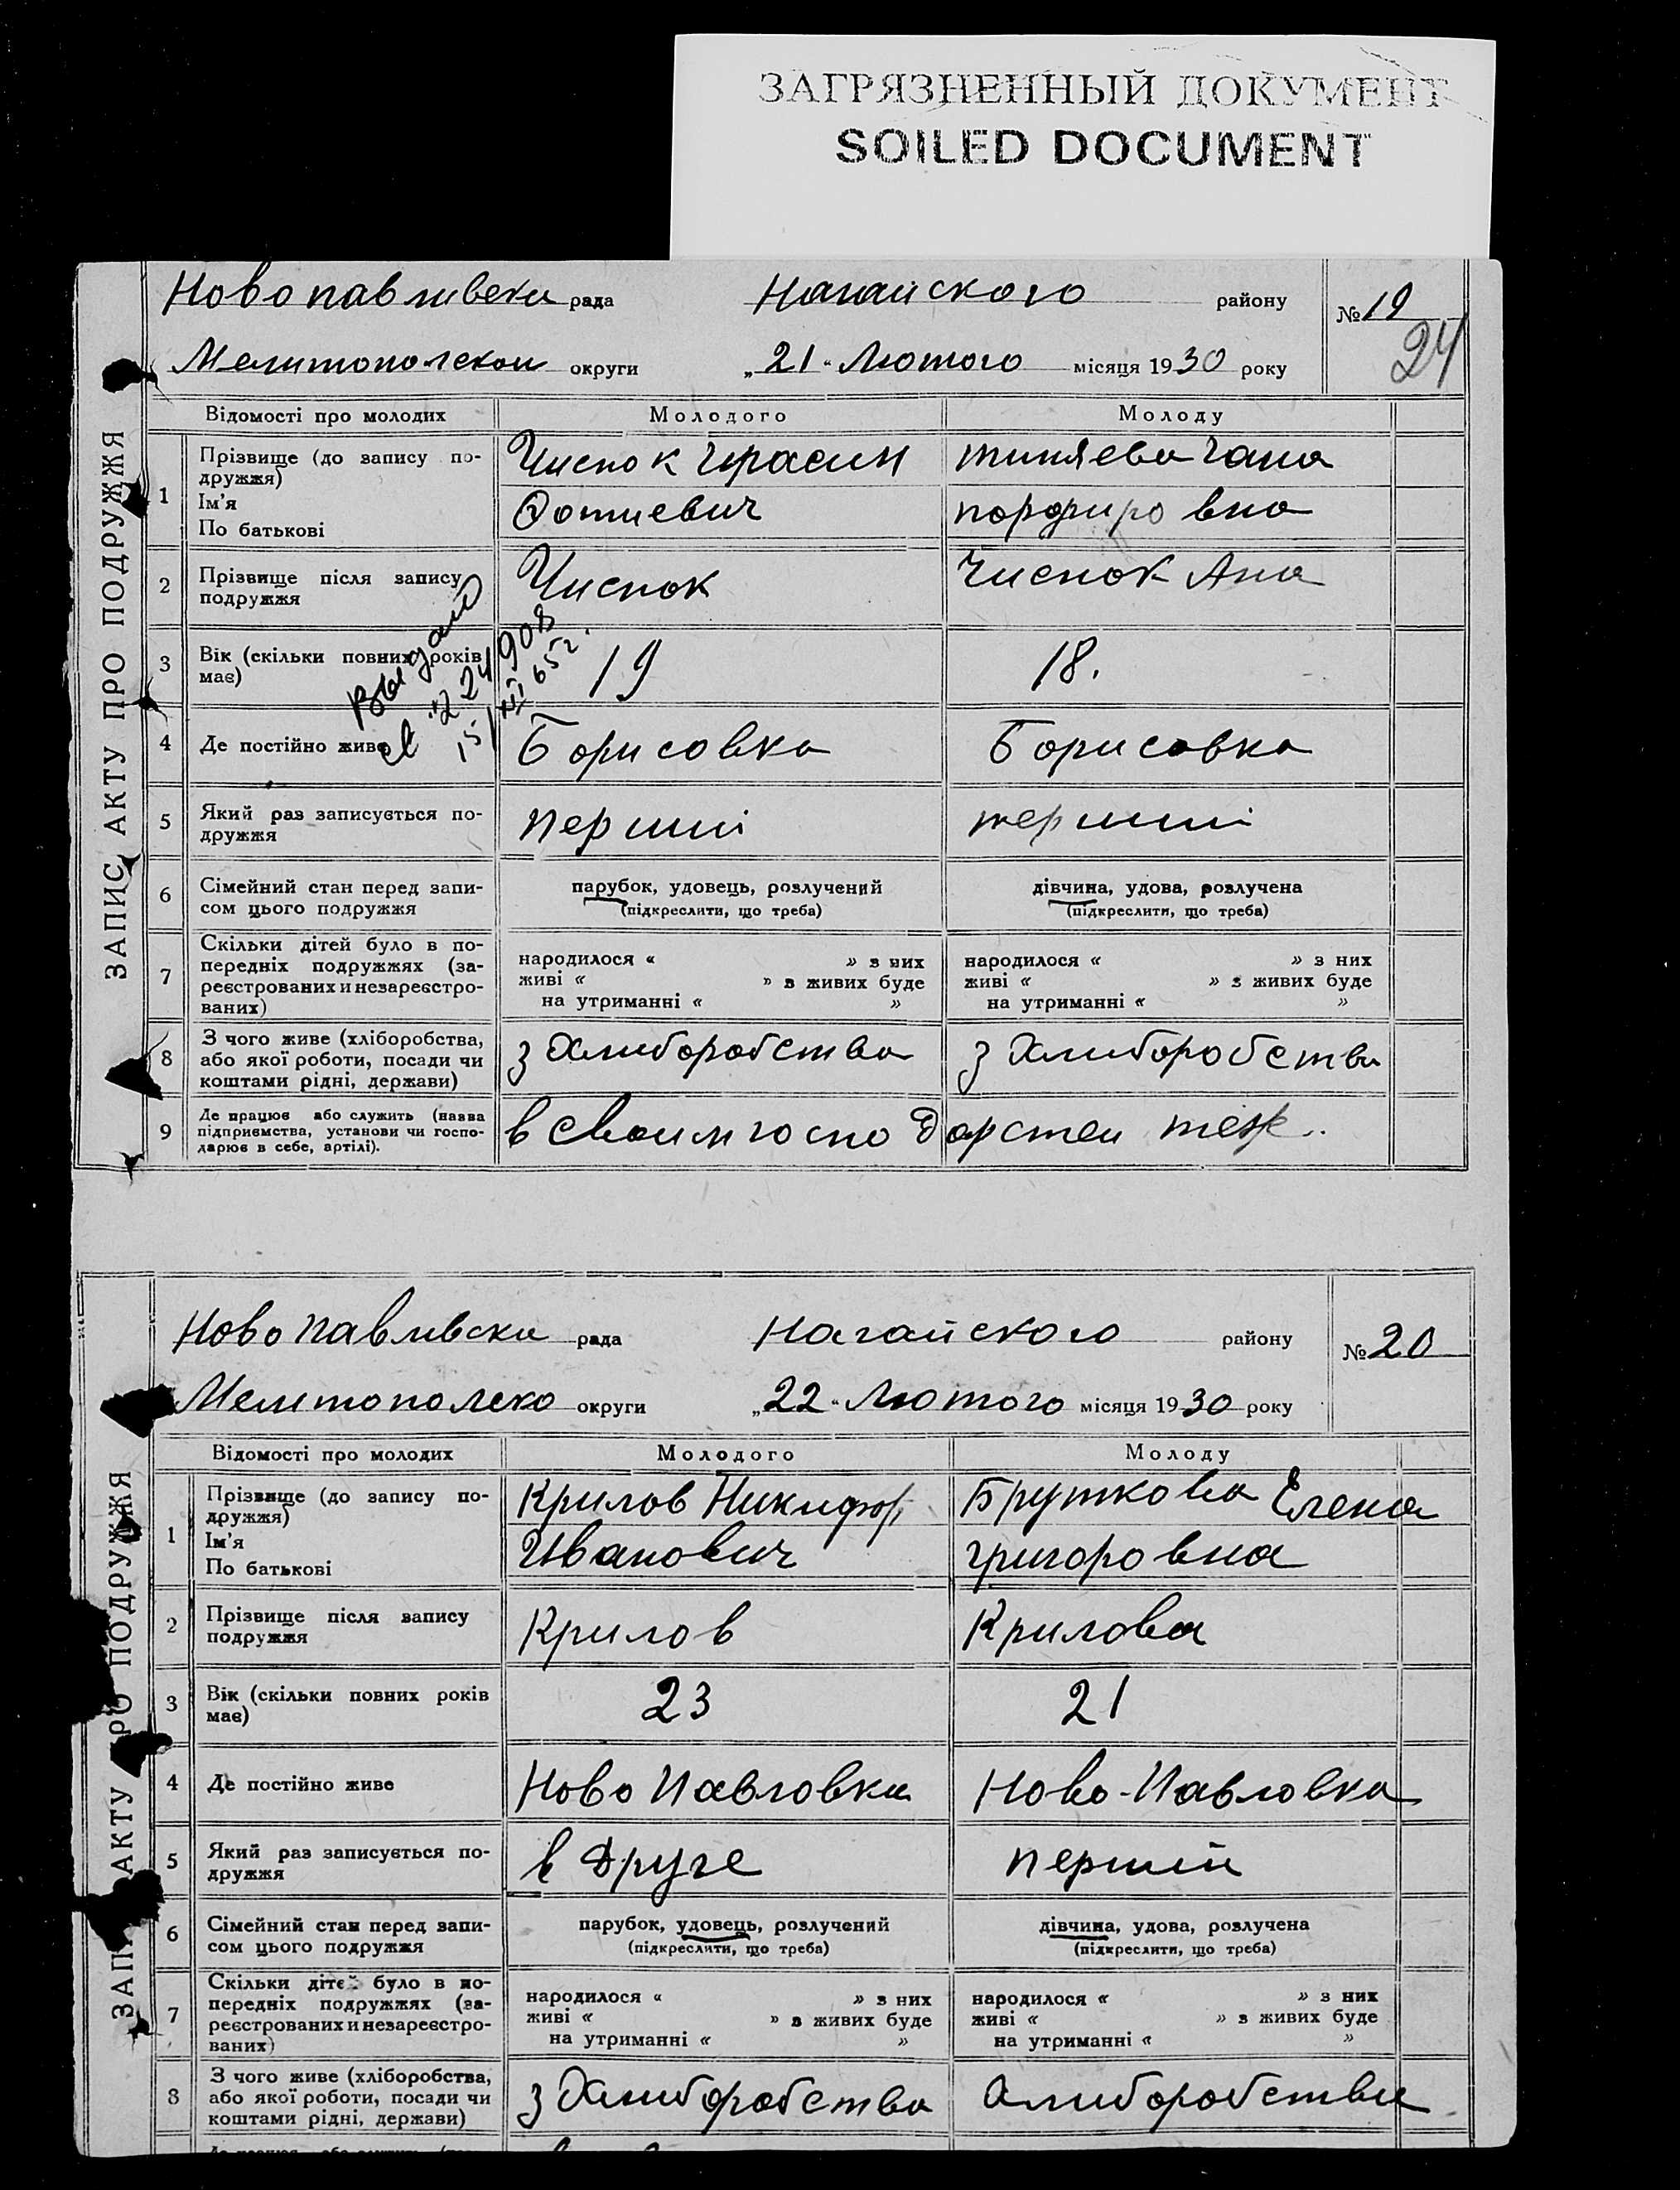 ЗАГРЯЗНЕННЫЙ ДОКУМЕНТ
SOILED DOCUMENT
Новопавливски рада Нагайского району №19
24
Мелитополской округи „21“ Лютого місяця 1930 року
ЗАПИС АКТУ ПРО ПОДРУЖЖЯ
Відомості про молодих Молодого Молоду
1 Прізвище (до запису по-
дружжя)
Ім’я
По батькові
Чиснок Герасим
Фотиевич
тиняева Гана
порфировна
2 Прізвище після запису
подружжя
Чиснок
Чиснок Ана
3 Вік (скільки повних років
має)
19
18.
Выдано
15/XII 652.
4 Де постійно живе
Борисовка
Борисовка
5 Який раз записується по-
дружжя
перший
перший
6 Сімейний стан перед запи-
сом цього подружжя
парубок, удовець, розлучений
(підкреслити, що треба)
дівчина, удова, розлучена
(підкреслити, що треба)
7 Скільки дітей було в по-
передніх подружжях (за-
реєстрованих и незареєстро-
ваних)
народилося « » з них
живі « » з живих буде
на утриманні « »
народилося « » з них
живі « » з живих буде
на утриманні « »
8 З чого живе (хліборобства,
або якої роботи, посади чи
коштами рідні, держави)
з Хлиборобства
з Хлиборобства
9 Де працює або служить (назва
підприємства, установи чи госпо-
дарює в себе, артілі).
в своим господарстви теж.
Ново Павливски рада Нагайского району №20
Мелитополско округи „22“ Лютого місяця 1930 року
ЗАПИС АКТУ ПРО ПОДРУЖЖЯ
Відомості про молодих Молодого Молоду
1 Прізвище (до запису по-
дружжя)
Ім’я
По батькові
Крилов Никифор
Иванович
Бруткова Елена
григоровна
2 Прізвище після запису
подружжя
Крилов
Крилова
3 Вік (скільки повних років
має)
23
21
4 Де постійно живе
Ново Павловка
Ново-Павловка
5 Який раз записується по-
дружжя
в Друге
перший
6 Сімейний стан перед запи-
сом цього подружжя
парубок, удовець, розлучений
(підкреслити, що треба)
дівчина, удова, розлучена
(підкреслити, що треба)
7 Скільки дітей було в по-
передніх подружжях (за-
реєстрованих и незареєстро-
ваних)
народилося « » з них
живі « » з живих буде
на утриманні « »
народилося « » з них
живі « » з живих буде
на утриманні « »
8 З чого живе (хліборобства,
або якої роботи, посади чи
коштами рідні, держави)
з Хлиборобства
Хлиборобства